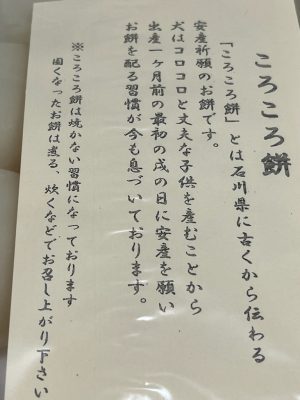 ころころ餅
「ころころ餅」とは石川県に古くから伝わる
安産祈願のお餅です。
犬はコロコロと丈夫な子供を産むことから
出産一ヶ月前の最初の戌の日に安産を願い
お餅を配る習慣が今も息づいております。
※ころころ餅は焼かない習慣になっております
固くなったお餅は煮る、炊くなどでお召し上がり下さい